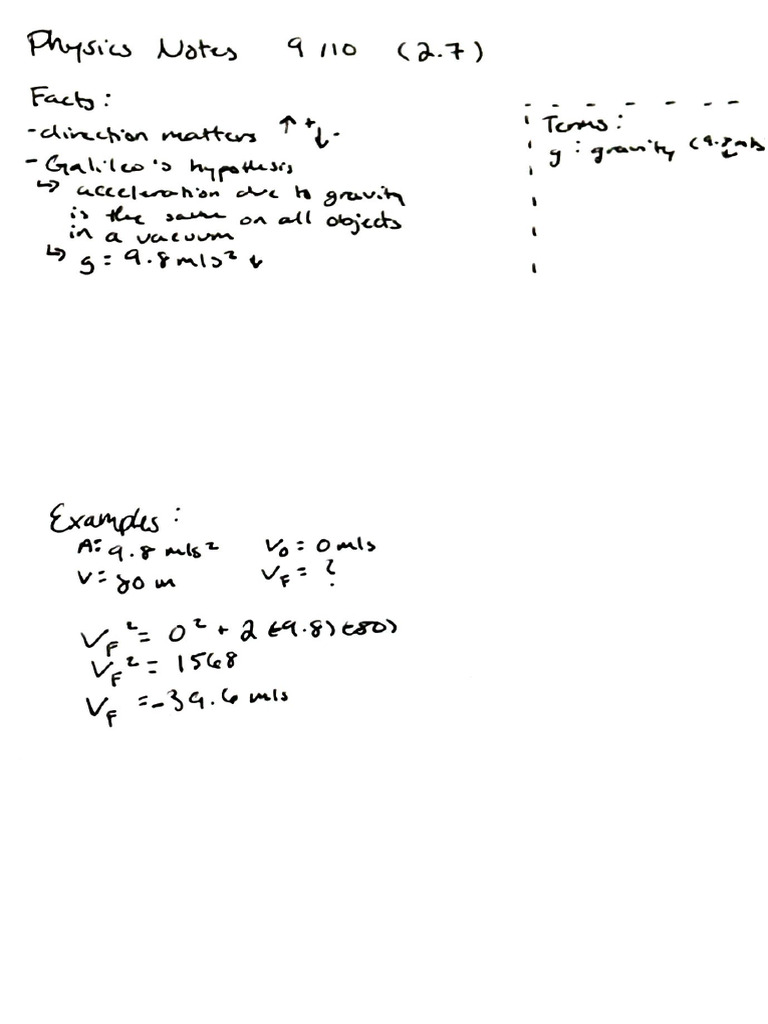 Physics Notes 9/10 (2.7)
Facts:
- direction matters ↑+ ↓-
- Galileo's hypothesis
↳ acceleration due to gravity
is the same on all objects
in a vacuum
↳ g = 9.8 m/s² ↓
Terms:
g : gravity (9.8 m/s
↓
Examples:
A = 9.8 m/s² V₀ = 0 m/s
V = 80 m V_F = ?
V_F² = 0² + 2(-9.8)(-80)
V_F² = 1568
V_F = -39.6 m/s